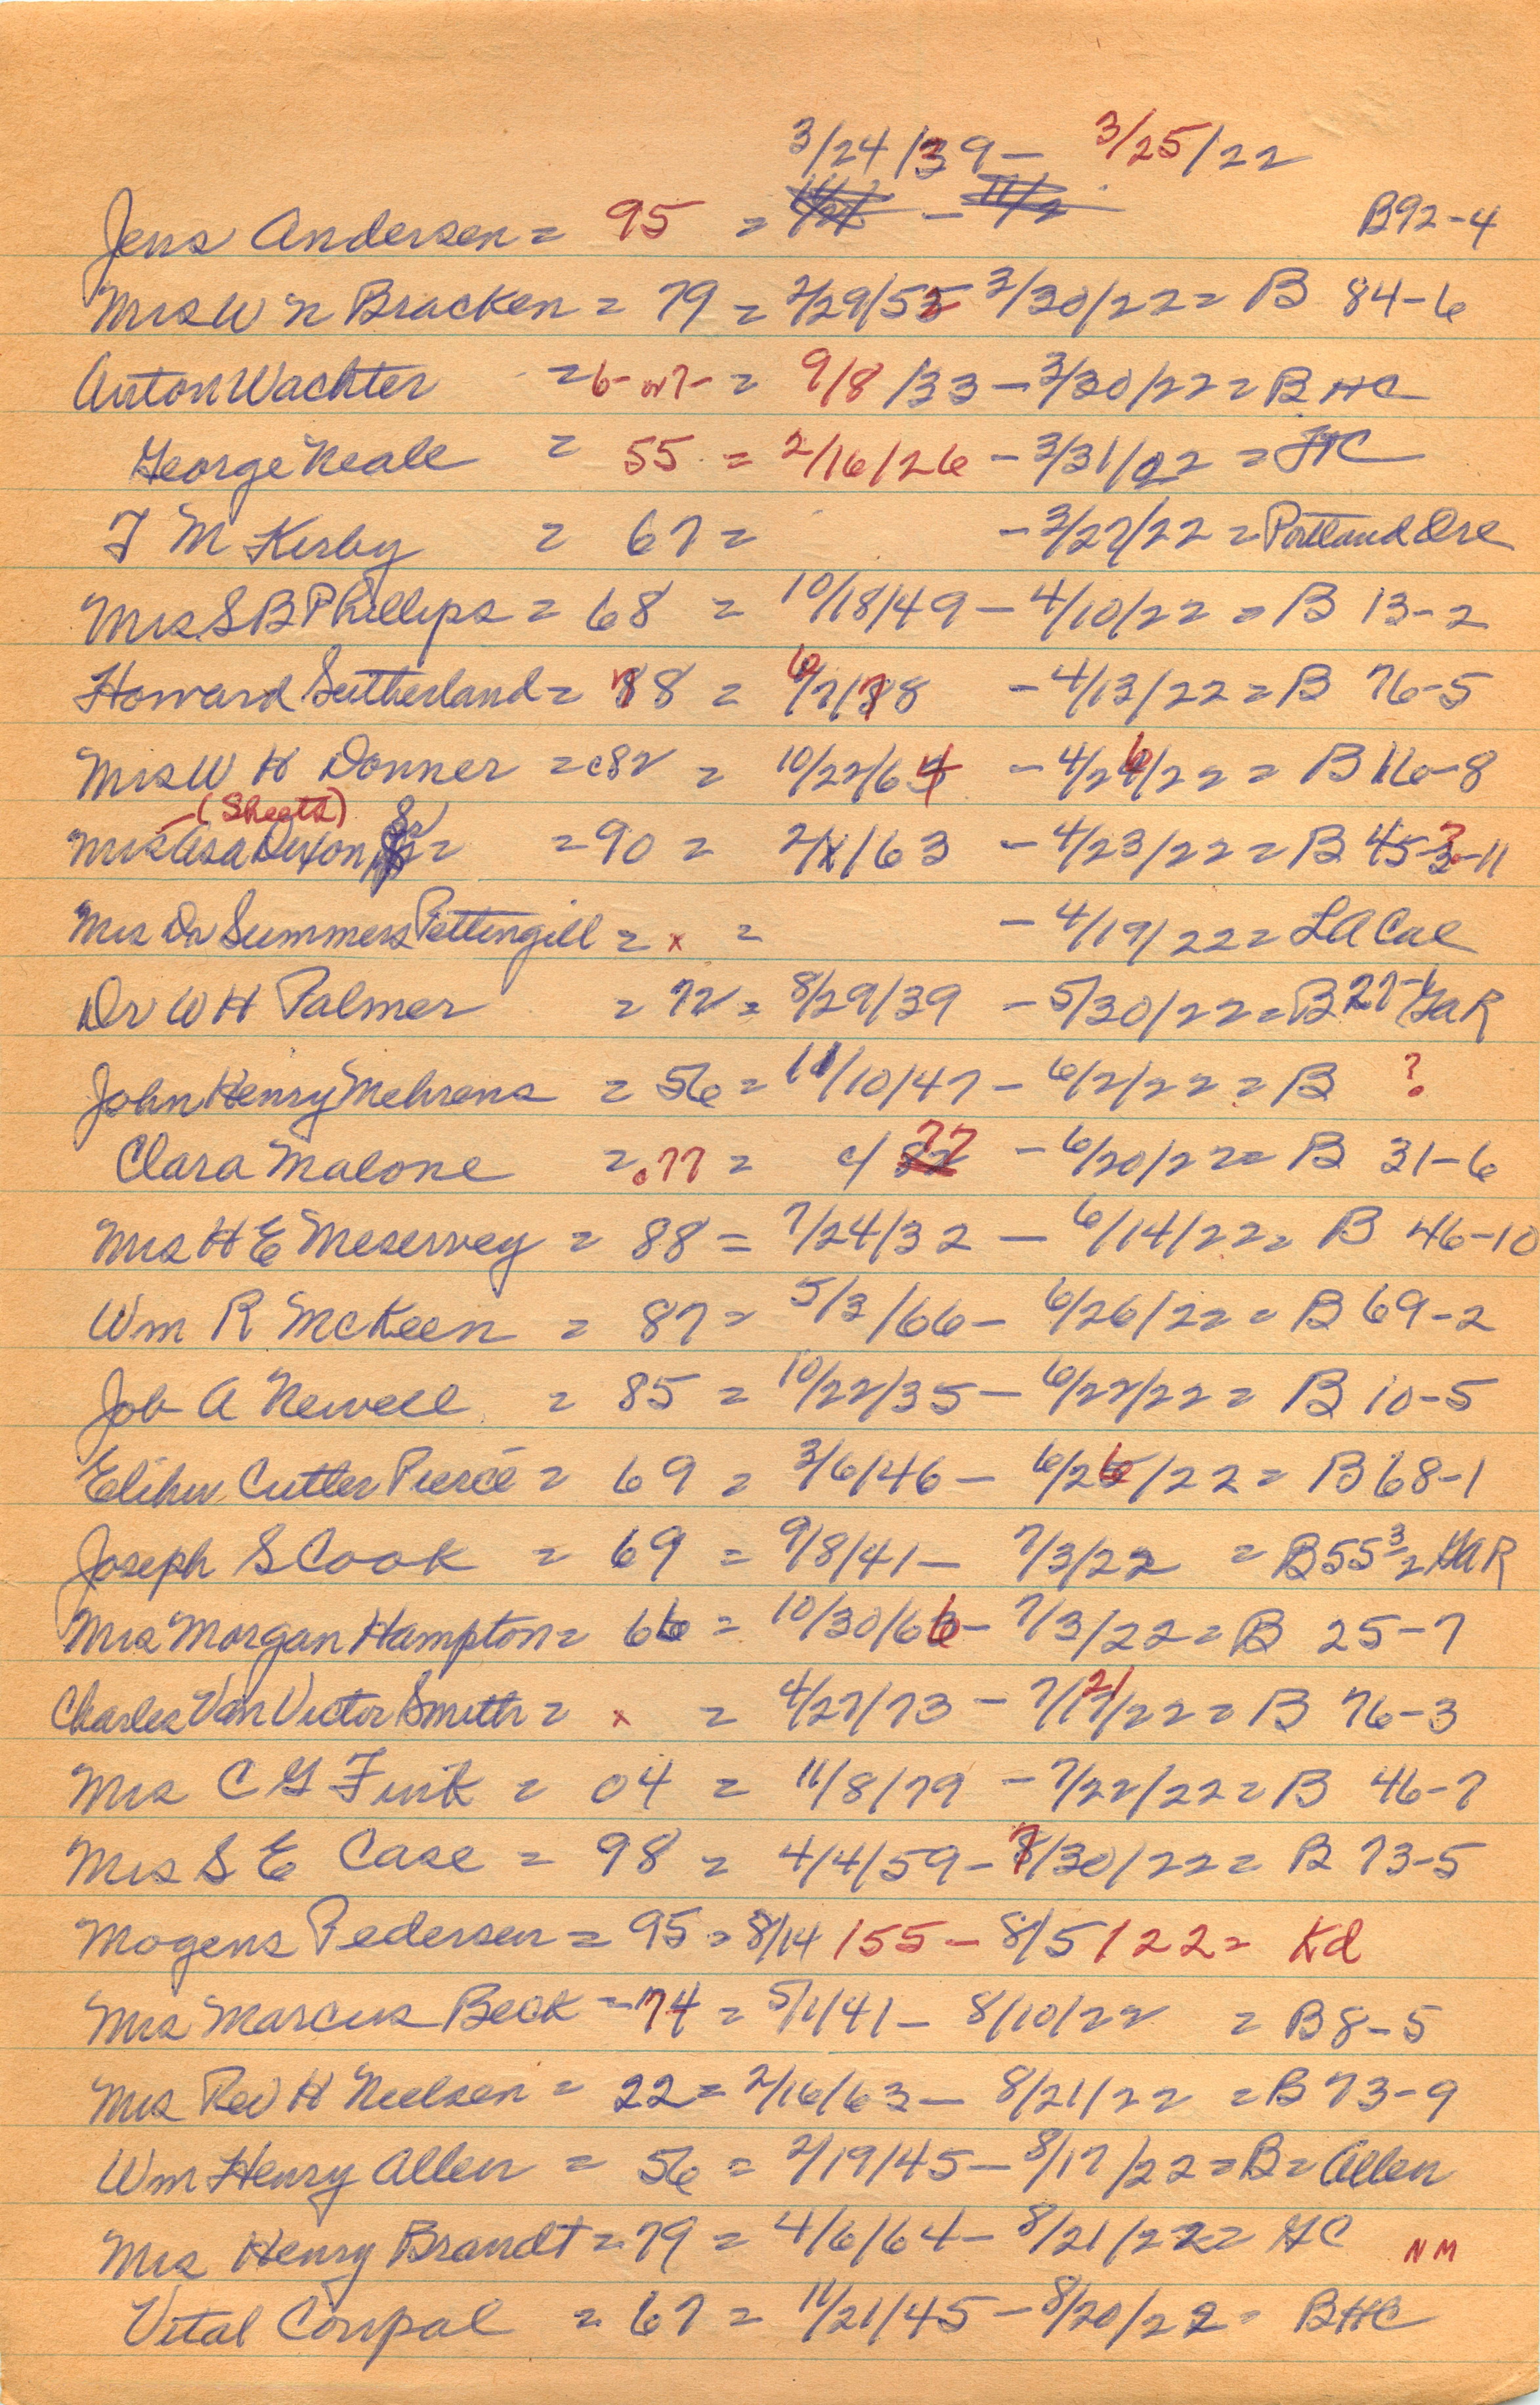 3/24/39 – 3/25/22
Jens Andersen = 95 = B92-4
Mrs W N Bracken = 79 = 2/29/55 3/30/22 = B 84-6
Anton Wachter = 6- or 7- = 9/8/33 – 3/30/22 = B HC
George Neale = 55 = 2/16/26 – 3/31/22 = HC
T M Kerby = 67 = – 3/27/22 = Portland Ore
Mrs S B Phillips = 68 = 10/18/49 – 4/10/22 = B 13-2
Howard Sutherland = 78 = 6/7/78 – 4/13/22 = B 76-5
Mrs W H Donner = c82 = 10/22/64 – 4/26/22 = B 116-8
(Sheets)
Mrs Asa Dixon Sr = = 90 = 2/x/63 – 4/23/22 = B 45-?-11
Mrs Dr Summers Pettengill = x = – 4/19/22 = LA Cal
Dr W H Palmer = 72 = 8/29/39 – 5/30/22 = B 27-1 GAR
John Henry Mehrens = 56 = 11/10/47 – 6/2/22 = B ?
Clara Malone = .77 = c/77 – 6/20/22 = B 31-6
Mrs H E Meservey = 88 = 7/24/32 – 6/14/22 = B 46-10
Wm R McKeen = 87 = 5/3/66 – 6/26/22 = B 69-2
Job A Newell = 85 = 10/22/35 – 6/22/22 = B 10-5
Elihu Cutler Pierce = 69 = 3/6/46 – 6/26/22 = B 68-1
Joseph S Cook = 69 = 9/8/41 – 7/3/22 = B 55 3/2 GAR
Mrs Morgan Hampton = 66 = 10/30/66 – 7/3/22 = B 25-7
Charles Van Victor Smith = x = 4/27/73 – 7/21/22 = B 76-3
Mrs C G Fink = 04 = 11/8/79 – 7/22/22 = B 46-7
Mrs S E Case = 98 = 4/4/59 – 7/30/22 = B 73-5
Mogens Pedersen = 95 = 8/14/55 – 8/5/22 = Kd
Mrs Marcus Beck = 74 = 5/1/41 – 8/10/22 = B 8-5
Mrs Rev H Nielsen = 22 = 2/16/63 – 8/21/22 = B 73-9
Wm Henry Allen = 56 = 2/19/45 – 8/17/22 = B = Allen
Mrs Henry Brandt = 79 = 4/6/64 – 8/21/22 = GC NM
Vital Coupal = 67 = 11/21/45 – 8/20/22 = B HC